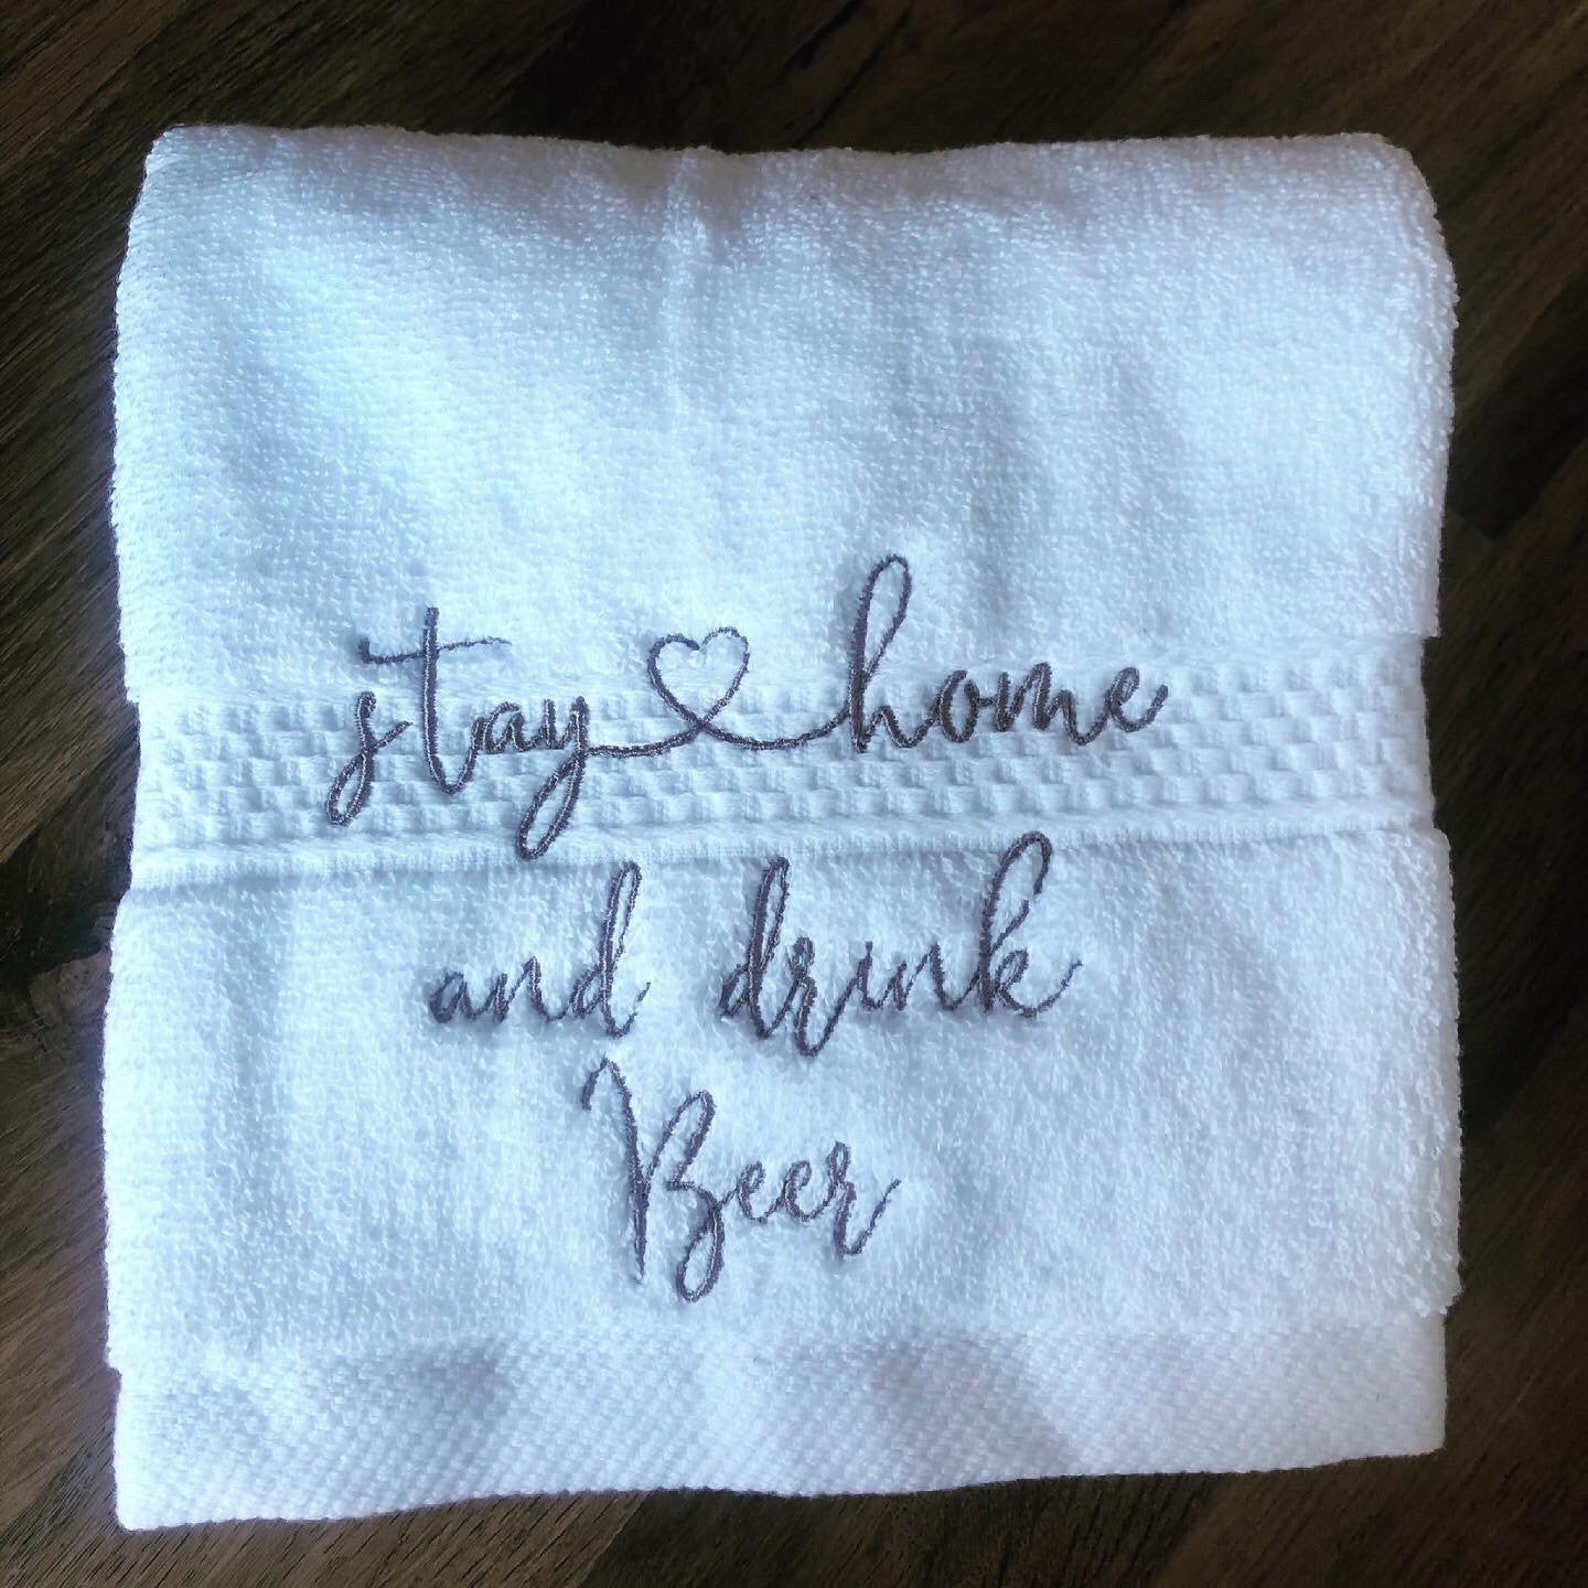 stay home
and drink
Beer